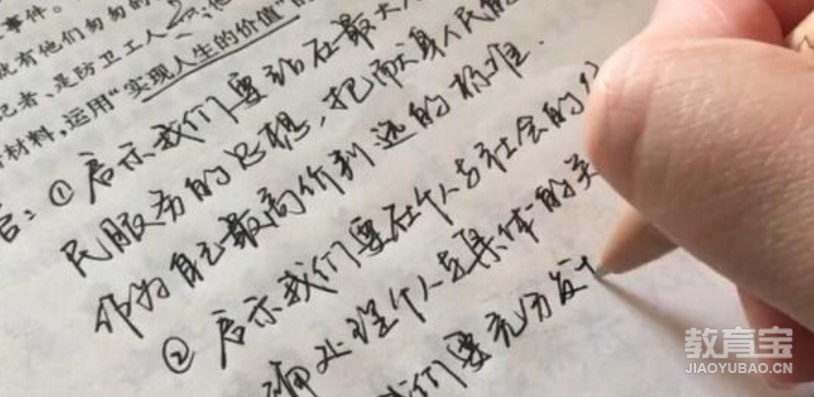 事件。
就有他们匆匆的
记者、是防卫工人
材料,运用“实现人生的价值”的
答:①启示我们要站在最大人
民服务的思想,把献身人民的
作为自己最高价到远的标准.
②启示我们要在个人与社会的
确处理个人与集体的关
我们要充分发
教育宝
JIAOYUBAO.CN